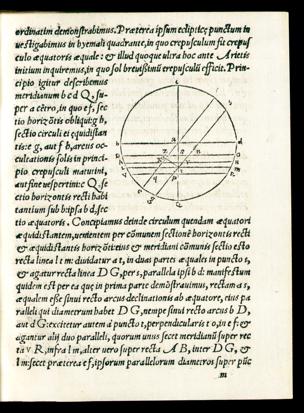 ordinatim demonstrabimus. Præterea ipsum eclipticę punctum in
uestigabimus in hyemali quadrante, in quo crepusculum fit crepus
culo æquatoris æquale: & illud quoque ultra hoc ante Arietis
initium inquiremus, in quo sol breuißimũ crepusculũ efficit. Prin-
cipio igitur describemus
meridianum b c d Q. su-
per a cẽtro, in quo e f, sec
tio horizõtis obliqui: g h,
sectio circuli ei ęquidistan
tis: e g, aut f h, arcus oc-
cultationis solis in princi-
pio crepusculi maturini,
aut fine uespertini: c Q. se-
ctio horizontis recti habi
tantium sub b: ipsa b d, sec
tio æquatoris. Concipiamus deinde circulum quendam æquatori
æquidistantem, uenientem per cõmunem sectionẽ horizontis recti
& æquidistantis horizõti: eius & meridiani cõmunis sectio esto
recta linea l m: diuidatur a t, in duas partes æquales in puncto s,
& agatur recta linea D G, per s, parallela ipsi b d: manifestum
quidem est per ea quę in prima parte demõstrauimus, rectam a s,
æqualem esse sinui recto arcus declinationis ab æquatore, eius pa
ralleli qui diametrum habet D G, nempe sinui recto arcus b D,
aut d G: excitetur autem à puncto t, perpendicularis t o, in e f: &
agantur alij duo paralleli, quorum unus secet meridianũ super rec
ta V R, infra l m, alter uero super recta A B, inter D G, &
l m: secet præterea e f, ipsorum parallelorum diametros super pũc
m